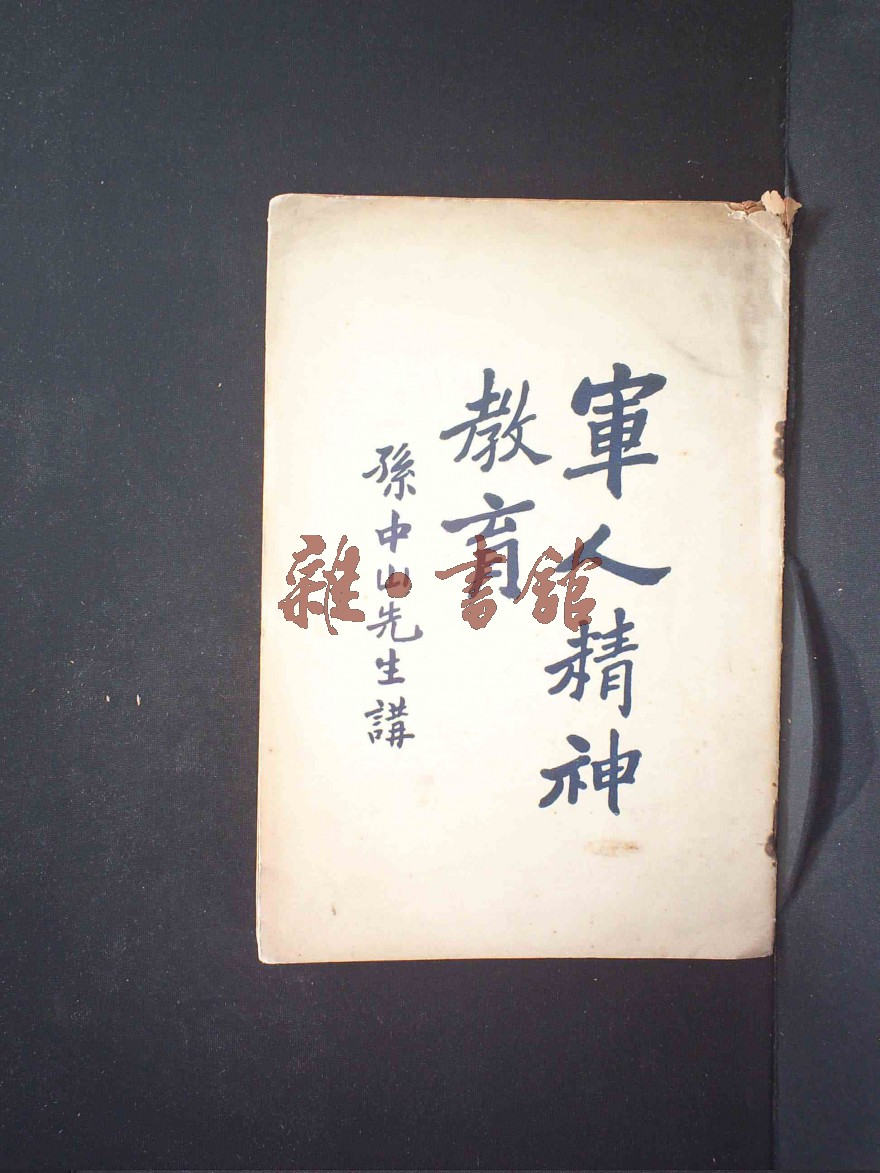 軍人精神
教育
孫中山先生講
雜·書館